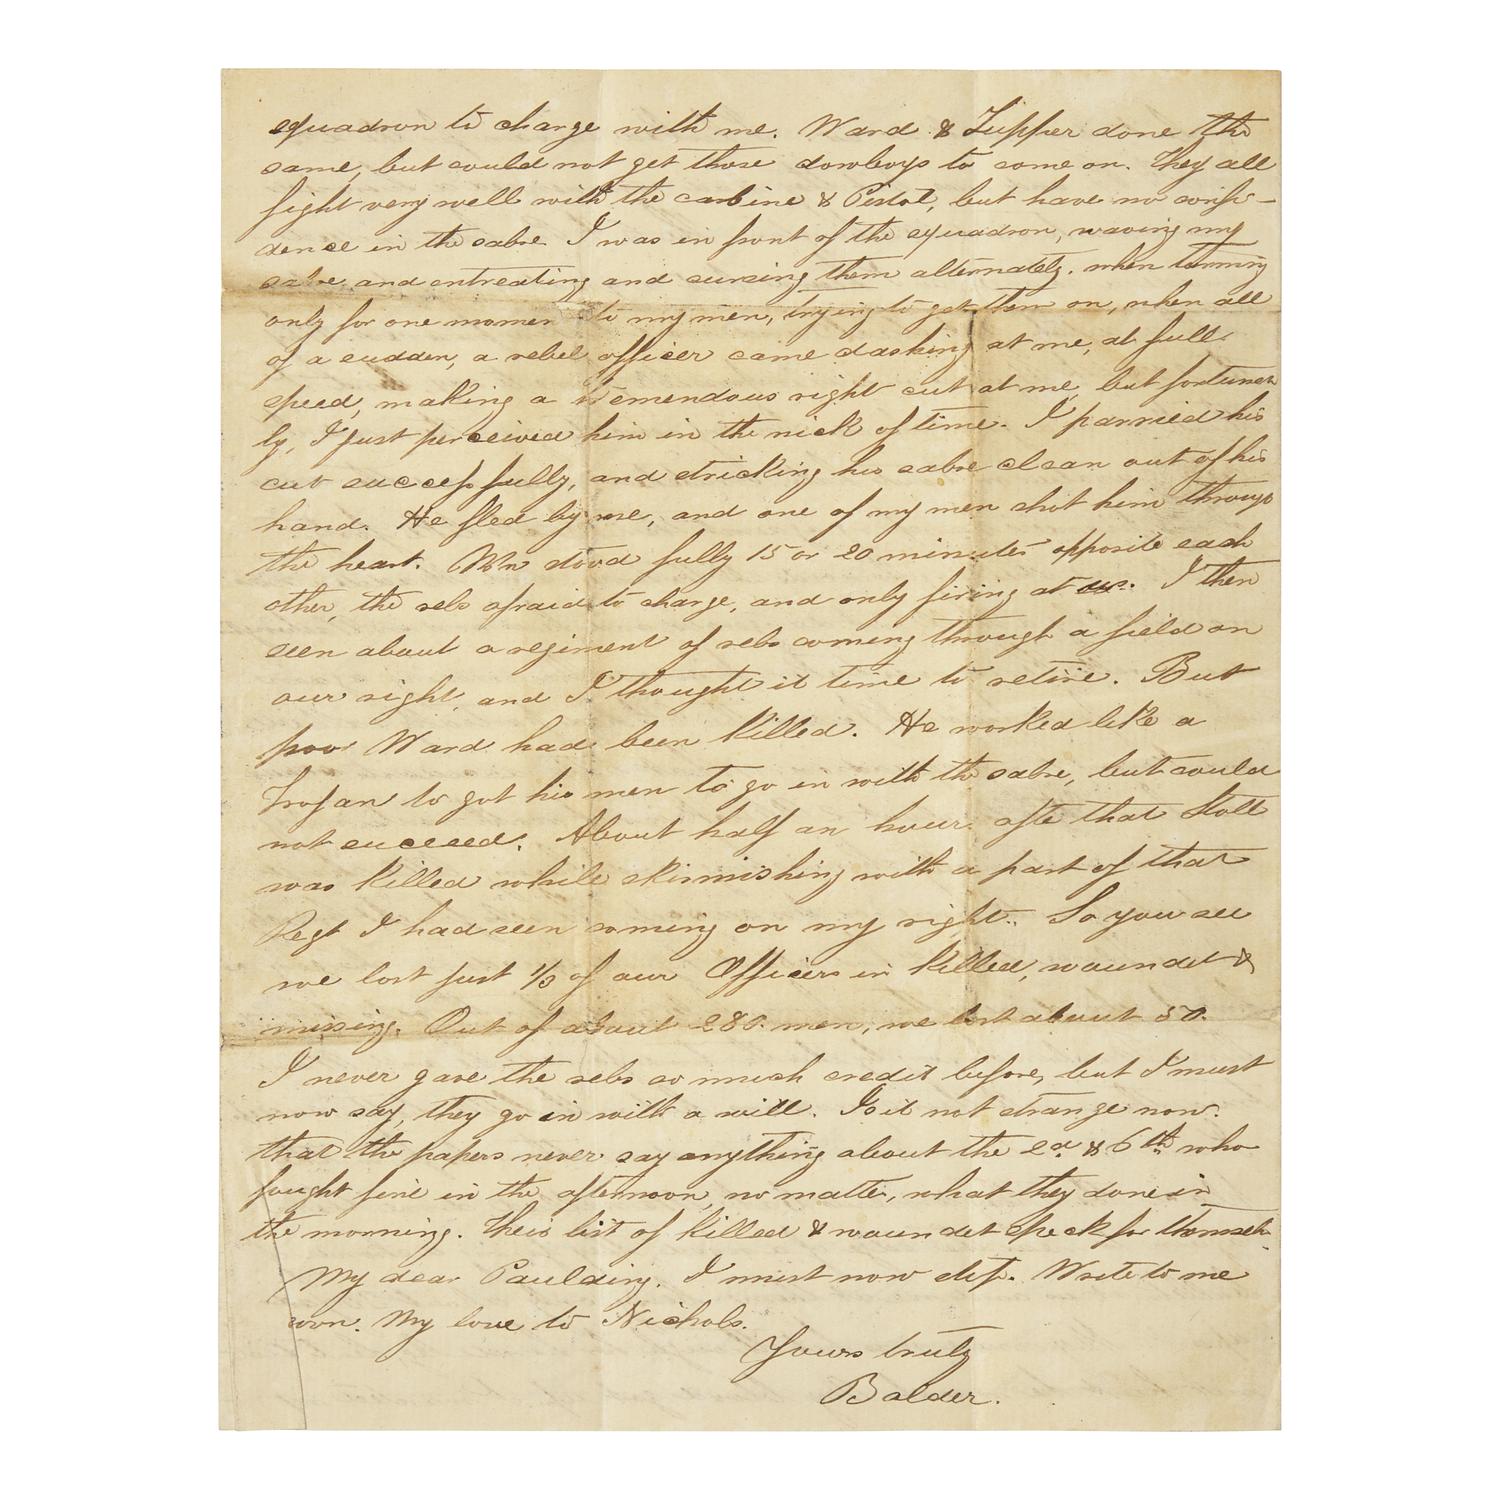 squadron to charge with me. Ward & Tupper done the
same, but could not get those cowboys to come on. They all
fight very well with the carbine & Pistol, but have no confi-
dence in the sabre. I was in front of the squadron, waving my
sabre, and entreating and cursing them alternately. when turning
only for one momen to my men, trying to get them on, when all
of a sudden, a rebel officer came dashing at me, at full
speed, making a tremendous right cut at me, but fortunate
ly, I just perceived him in the nick of time. I parried his
cut successfully, and stricking his sabre clean out of his
hand. He fled by me, and one of my men shot him through
the heart. We stood fully 15 or 20 minutes opposite each
other, the rebs afraid to charge, and only firing at us. I then
seen about a regiment of rebs coming through a field on
our right, and I thought it time to retire. But
poor Ward had been killed. He worked like a
Trojan to get his men to go in with the sabre, but could
not succeed. About half an hour afte that Stoll
was killed while skirmishing with a part of that
Regt I had seen coming on my right. So you see
we lost just 1/3 of our Officers in killed, woundet &
missing. Out of about 280 men, we lost about 50.
I never gave the rebs so much credit before, but I must
now say, they go in with a will. Is it not strange now.
that the papers never say anything about the 2d & 6th who
fought fine in the afternoon, no matter, what they done in
the morning. Their list of killed & woundet speck for themselv
My dear Paulding. I must now stop. Write to me
soon. My love to Nichols.
Yours truly
Balder.